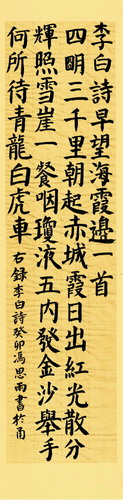 李白詩早望海霞邊一首
四明三千里朝起赤城霞日出紅光散分
輝照雪崖一餐咽瓊液五內發金沙舉手
何所待青龍白虎車
右錄李白詩癸卯馮思雨書於甬